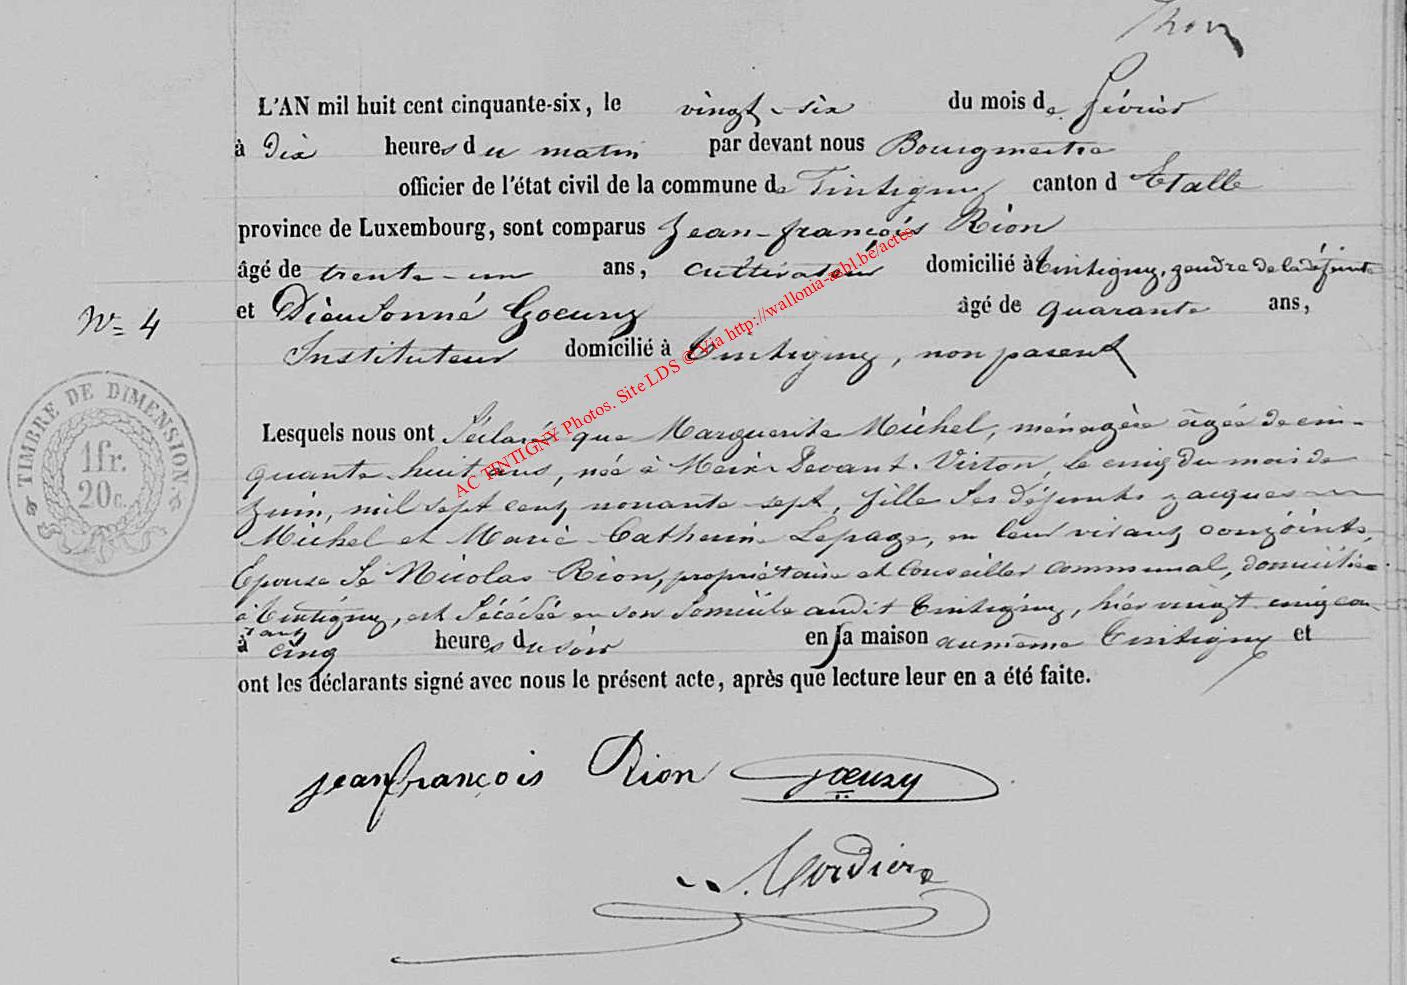 L'AN mil huit cent cinquante-six, le vingt-six du mois de février
à Dix heures du matin par devant nous Bourgmestre
officier de l'état civil de la commune de Tintigny canton d'Etalle
province de Luxembourg, sont comparus Jean-françois Rion
âgé de trente-un ans, cultivateur domicilié à Tintigny, gendre de la défunte
et Dieudonné Goeury âgé de quarante ans,
Instituteur domicilié à Tintigny, non parent
N= 4
TIMBRE DE DIMENSION
1fr.
20c.
Lesquels nous ont Déclaré que Marguerite Michel, ménagère âgée de cin-
quante-huit ans, née à Meix-Devant-Virton, le cinq du mois de
Juin, mil sept cent nonante sept, fille des défunts Jacques
Michel et Marie Catherine Lepage, en leur vivant conjoints,
Epouse de Nicolas Rion, propriétaire et Conseiller communal, domiciliée
à Tintigny, est Décédée en son domicile audit Tintigny, hier vingt cinq cou-
rant
à cinq heures du soir en la maison au même Tintigny et
ont les déclarants signé avec nous le présent acte, après que lecture leur en a été faite.
jean françois Rion Goeury
AC TINTIGNY Photos. Site LDS © Via http://wallonia-asbl.be/actes